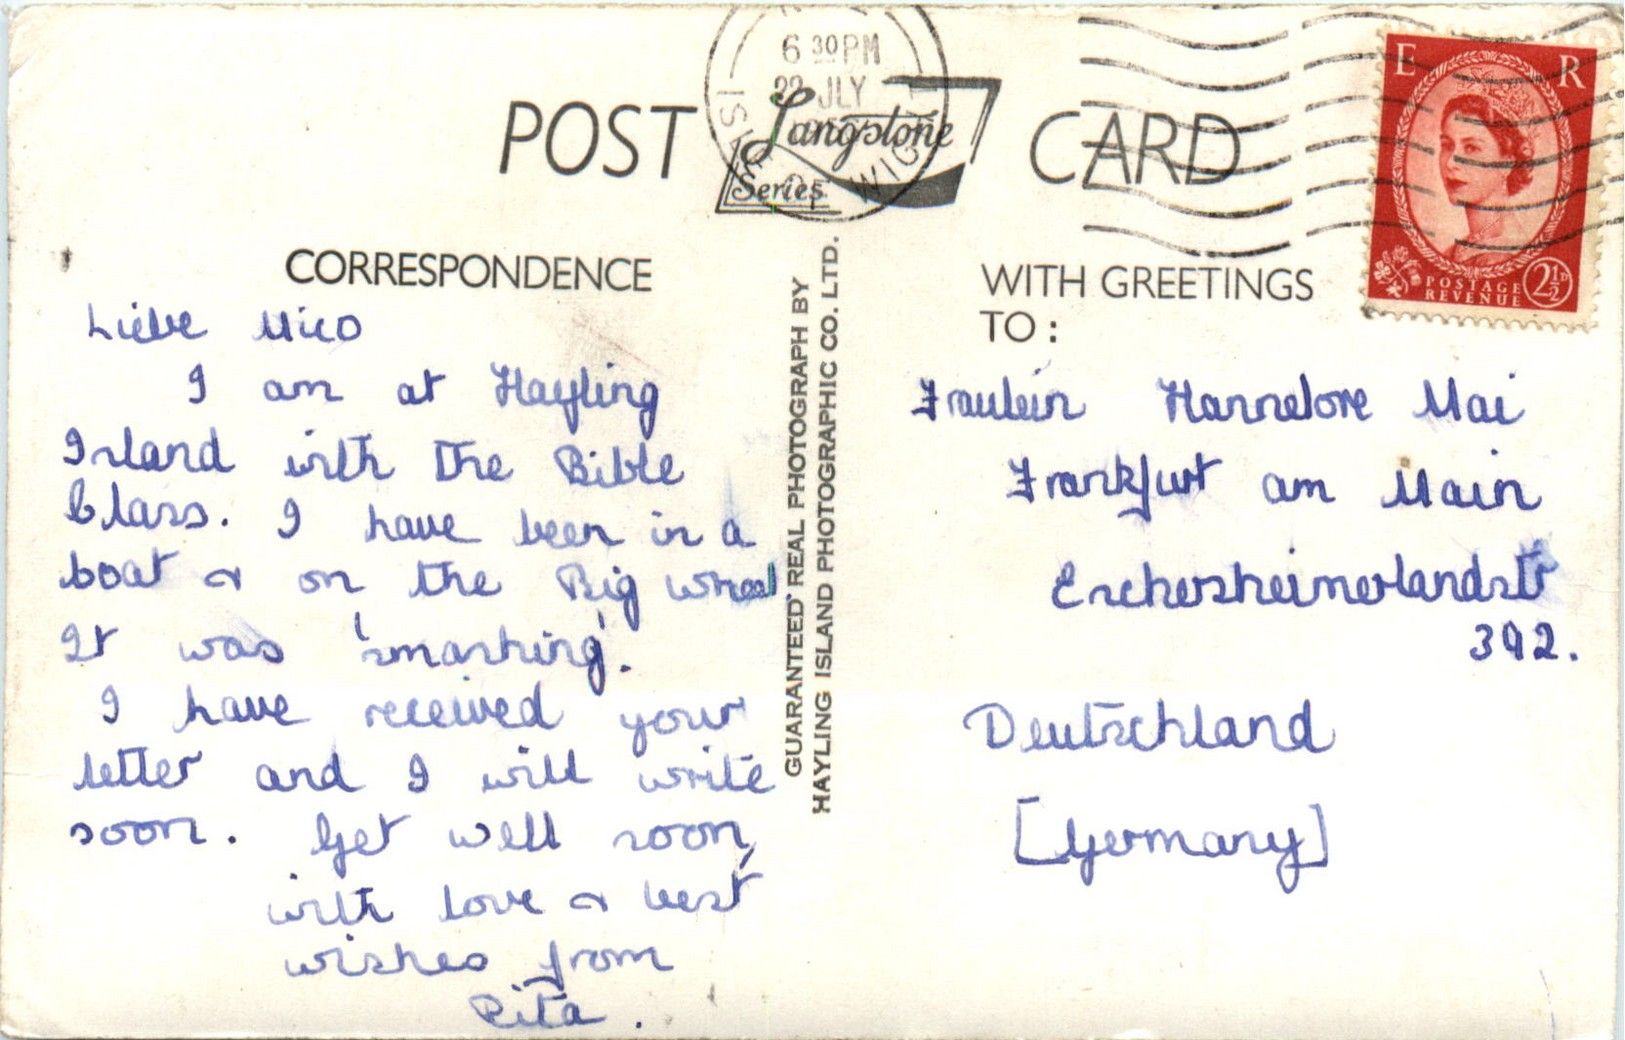 6 30 PM
22 JLY
ISLE OF WIGHT
POST CARD
Langstone
Series
E R
POSTAGE
REVENUE
2½D
CORRESPONDENCE
Liebe Mico
I am at Hayling
Island with the Bible
Class. I have been in a
boat & on the Big Wheel
It was 'smashing'.
I have received your
letter and I will write
soon. Get well soon,
with love & best
wishes from
Rita.
GUARANTEED REAL PHOTOGRAPH BY
HAYLING ISLAND PHOTOGRAPHIC CO. LTD.
WITH GREETINGS
TO:
Fraulein Hannelore Mai
Frankfurt am Main
Eschersheimerlandstr
392.
Deutschland
[Germany]